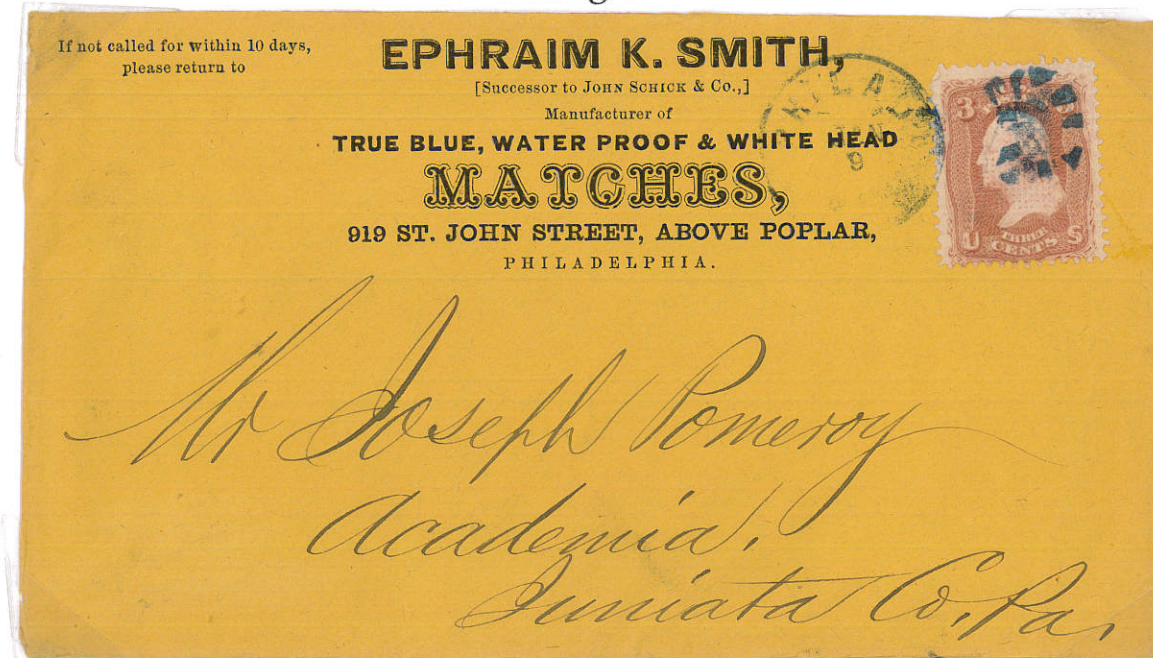 If not called for within 10 days,
please return to
EPHRAIM K. SMITH,
[Successor to JOHN SCHICK & Co.,]
Manufacturer of
TRUE BLUE, WATER PROOF & WHITE HEAD
MATCHES,
919 ST. JOHN STREET, ABOVE POPLAR,
PHILADELPHIA.
9
3
U THREE CENTS S
Mr Joseph Pomeroy
Academia,
Juniata Co, Pa,